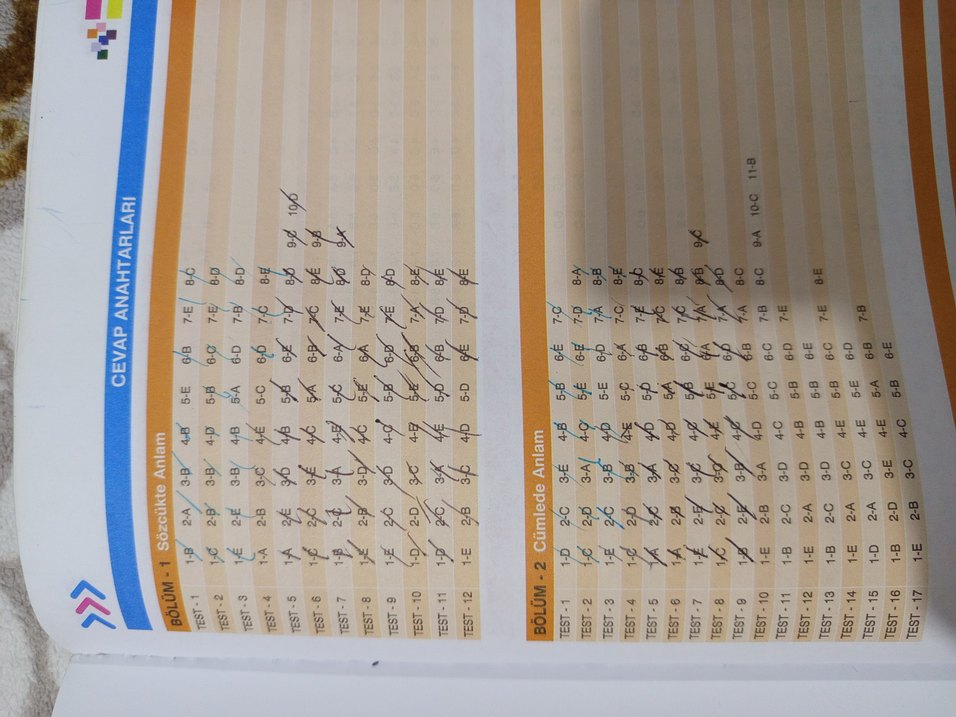 CEVAP ANAHTARLARI
BÖLÜM - 1 Sözcükte Anlam
TEST - 1 1-B 2-A 3-B 4-B 5-E 6-B 7-E 8-C
TEST - 2 1-C 2-B 3-B 4-D 5-B 6-C 7-E 8-D
TEST - 3 1-E 2-E 3-B 4-B 5-A 6-D 7-B 8-D
TEST - 4 1-A 2-B 3-C 4-E 5-C 6-D 7-C 8-E
TEST - 5 1-A 2-E 3-D 4-B 5-B 6-E 7-D 8-D 9-C 10-D
TEST - 6 1-C 2-C 3-E 4-C 5-A 6-B 7-C 8-E 9-B
TEST - 7 1-B 3-A 4-E 5-C 6-A 7-E 8-D 9-A
TEST - 8 1-E 2-B 3-D 4-C 5-E 6-A 7-E 8-D
TEST - 9 1-E 2-C 3-D 4-C 5-B 6-D 7-E 8-D
TEST - 10 1-D 2-D 3-C 4-B 5-E 6-B 7-A 8-E
TEST - 11 1-D 2-C 3-A 4-E 5-D 6-B 7-D 8-E
TEST - 12 1-E 2-B 3-C 4-D 5-D 6-E 7-D 8-E
BÖLÜM - 2 Cümlede Anlam
TEST - 1 1-D 2-C 3-E 4-B 5-B 6-E 7-C
TEST - 2 1-C 2-D 3-A 4-C 5-E 6-E 7-D 8-A
TEST - 3 1-E 2-C 3-B 4-D 5-E 6-D 7-A 8-B
TEST - 4 1-C 2-D 3-B 4-E 5-C 6-A 7-C 8-E
TEST - 5 1-A 2-C 3-A 4-D 5-D 6-B 7-E 8-C
TEST - 6 1-A 2-B 3-C 4-D 5-A 6-A 7-C 8-E
TEST - 7 1-E 2-D 3-D 4-C 5-B 6-C 7-C 8-B 9-C
TEST - 8 1-C 2-C 3-C 4-E 5-E 6-A 7-A 8-D
TEST - 9 1-B 2-E 3-B 4-C 5-C 6-B 7-A 8-C 9-A 10-C 11-B
TEST - 10 1-E 2-B 3-A 4-D 5-D 6-C 7-B 8-C
TEST - 11 1-B 2-C 3-D 4-C 5-B 6-C 7-E
TEST - 12 1-E 2-A 3-D 4-D 5-B 6-E
TEST - 13 1-C 2-D 3-D 4-B 5-B 6-C 7-E 8-E
TEST - 14 1-E 2-A 3-C 4-B 5-E 6-D
TEST - 15 1-D 2-A 3-C 4-E 5-A 6-B 7-B
TEST - 16 1-B 2-D 3-E 4-C 5-B 6-E
TEST - 17 1-E 2-B 3-C